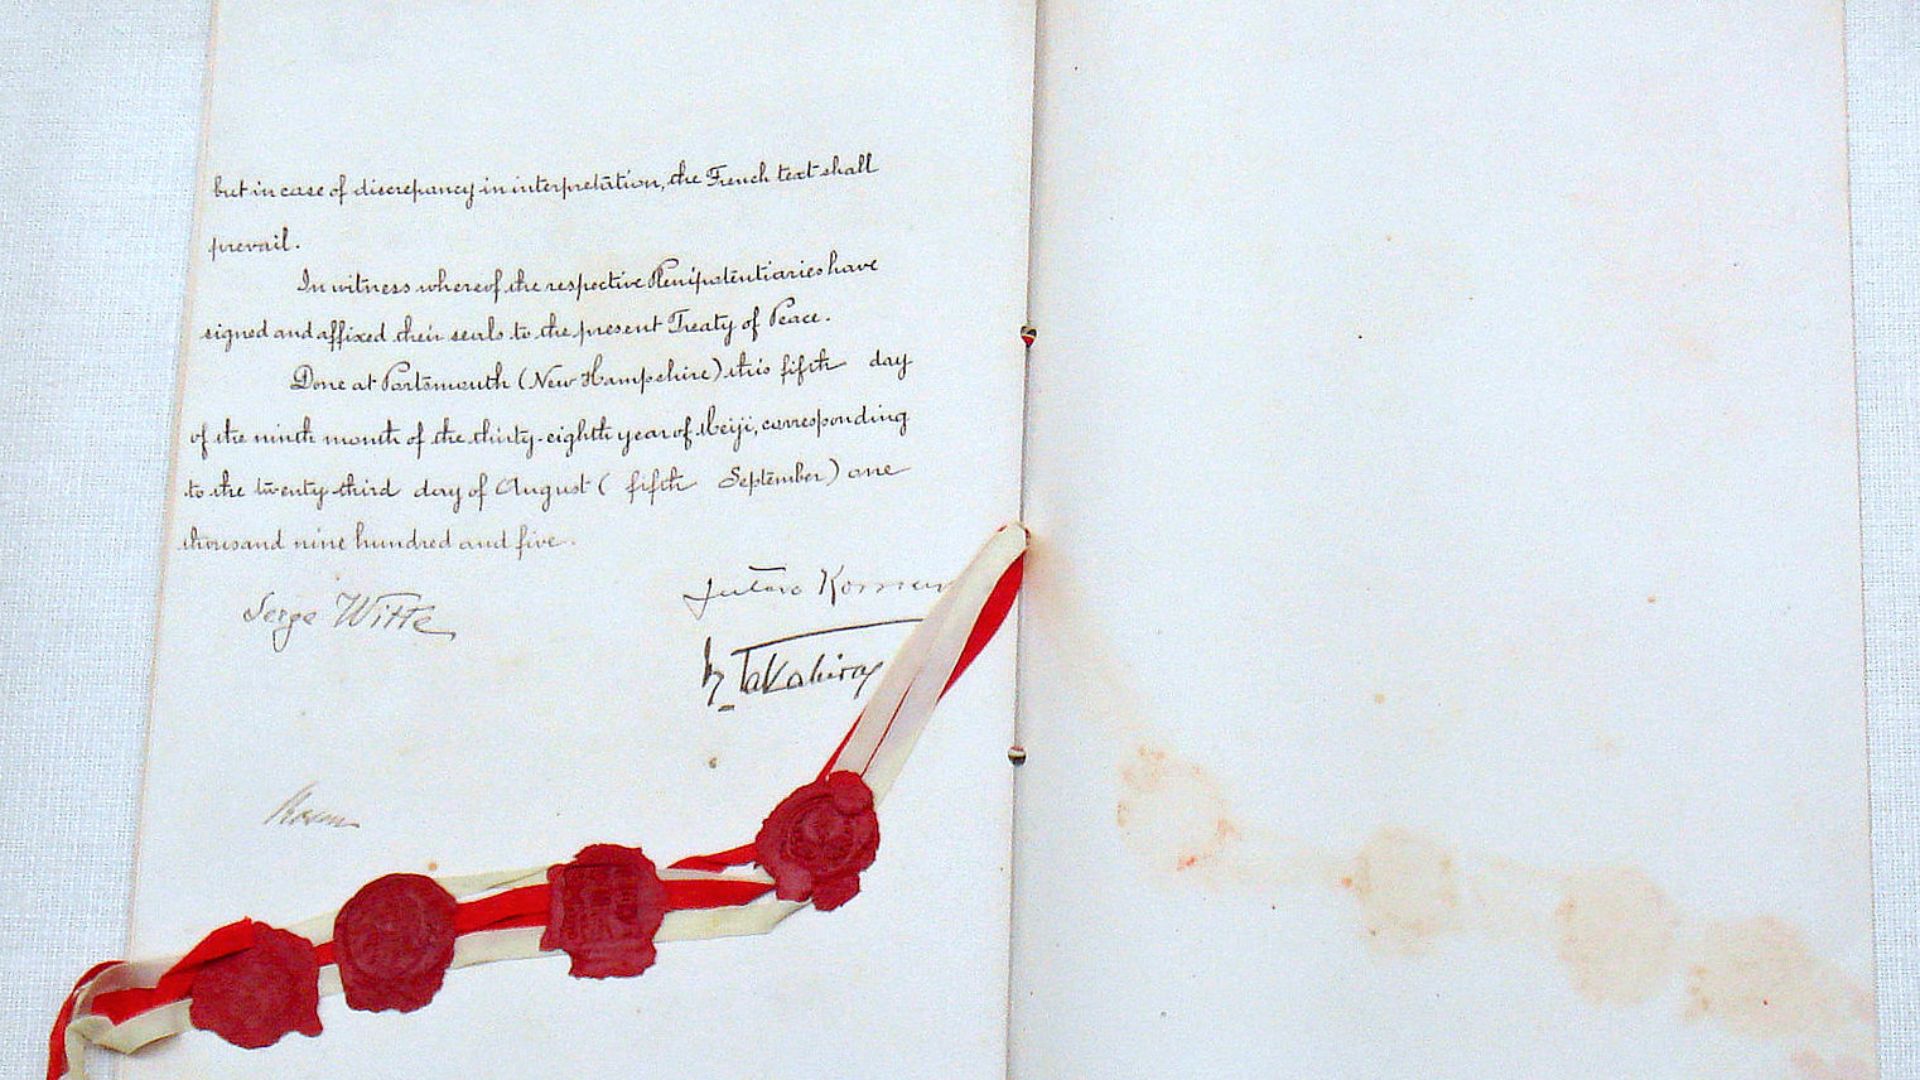 but in case of discrepancy in interpretation, the French text shall
prevail.
In witness whereof the respective Plenipotentiaries have
signed and affixed their seals to the present Treaty of Peace.
Done at Portsmouth (New Hampshire) this fifth day
of the ninth month of the thirty-eighth year of Meiji, corresponding
to the twenty third day of August ( fifth September) one
thousand nine hundred and five.
Serge Witte
Jutaro Komura
K. Takahira
Rosen